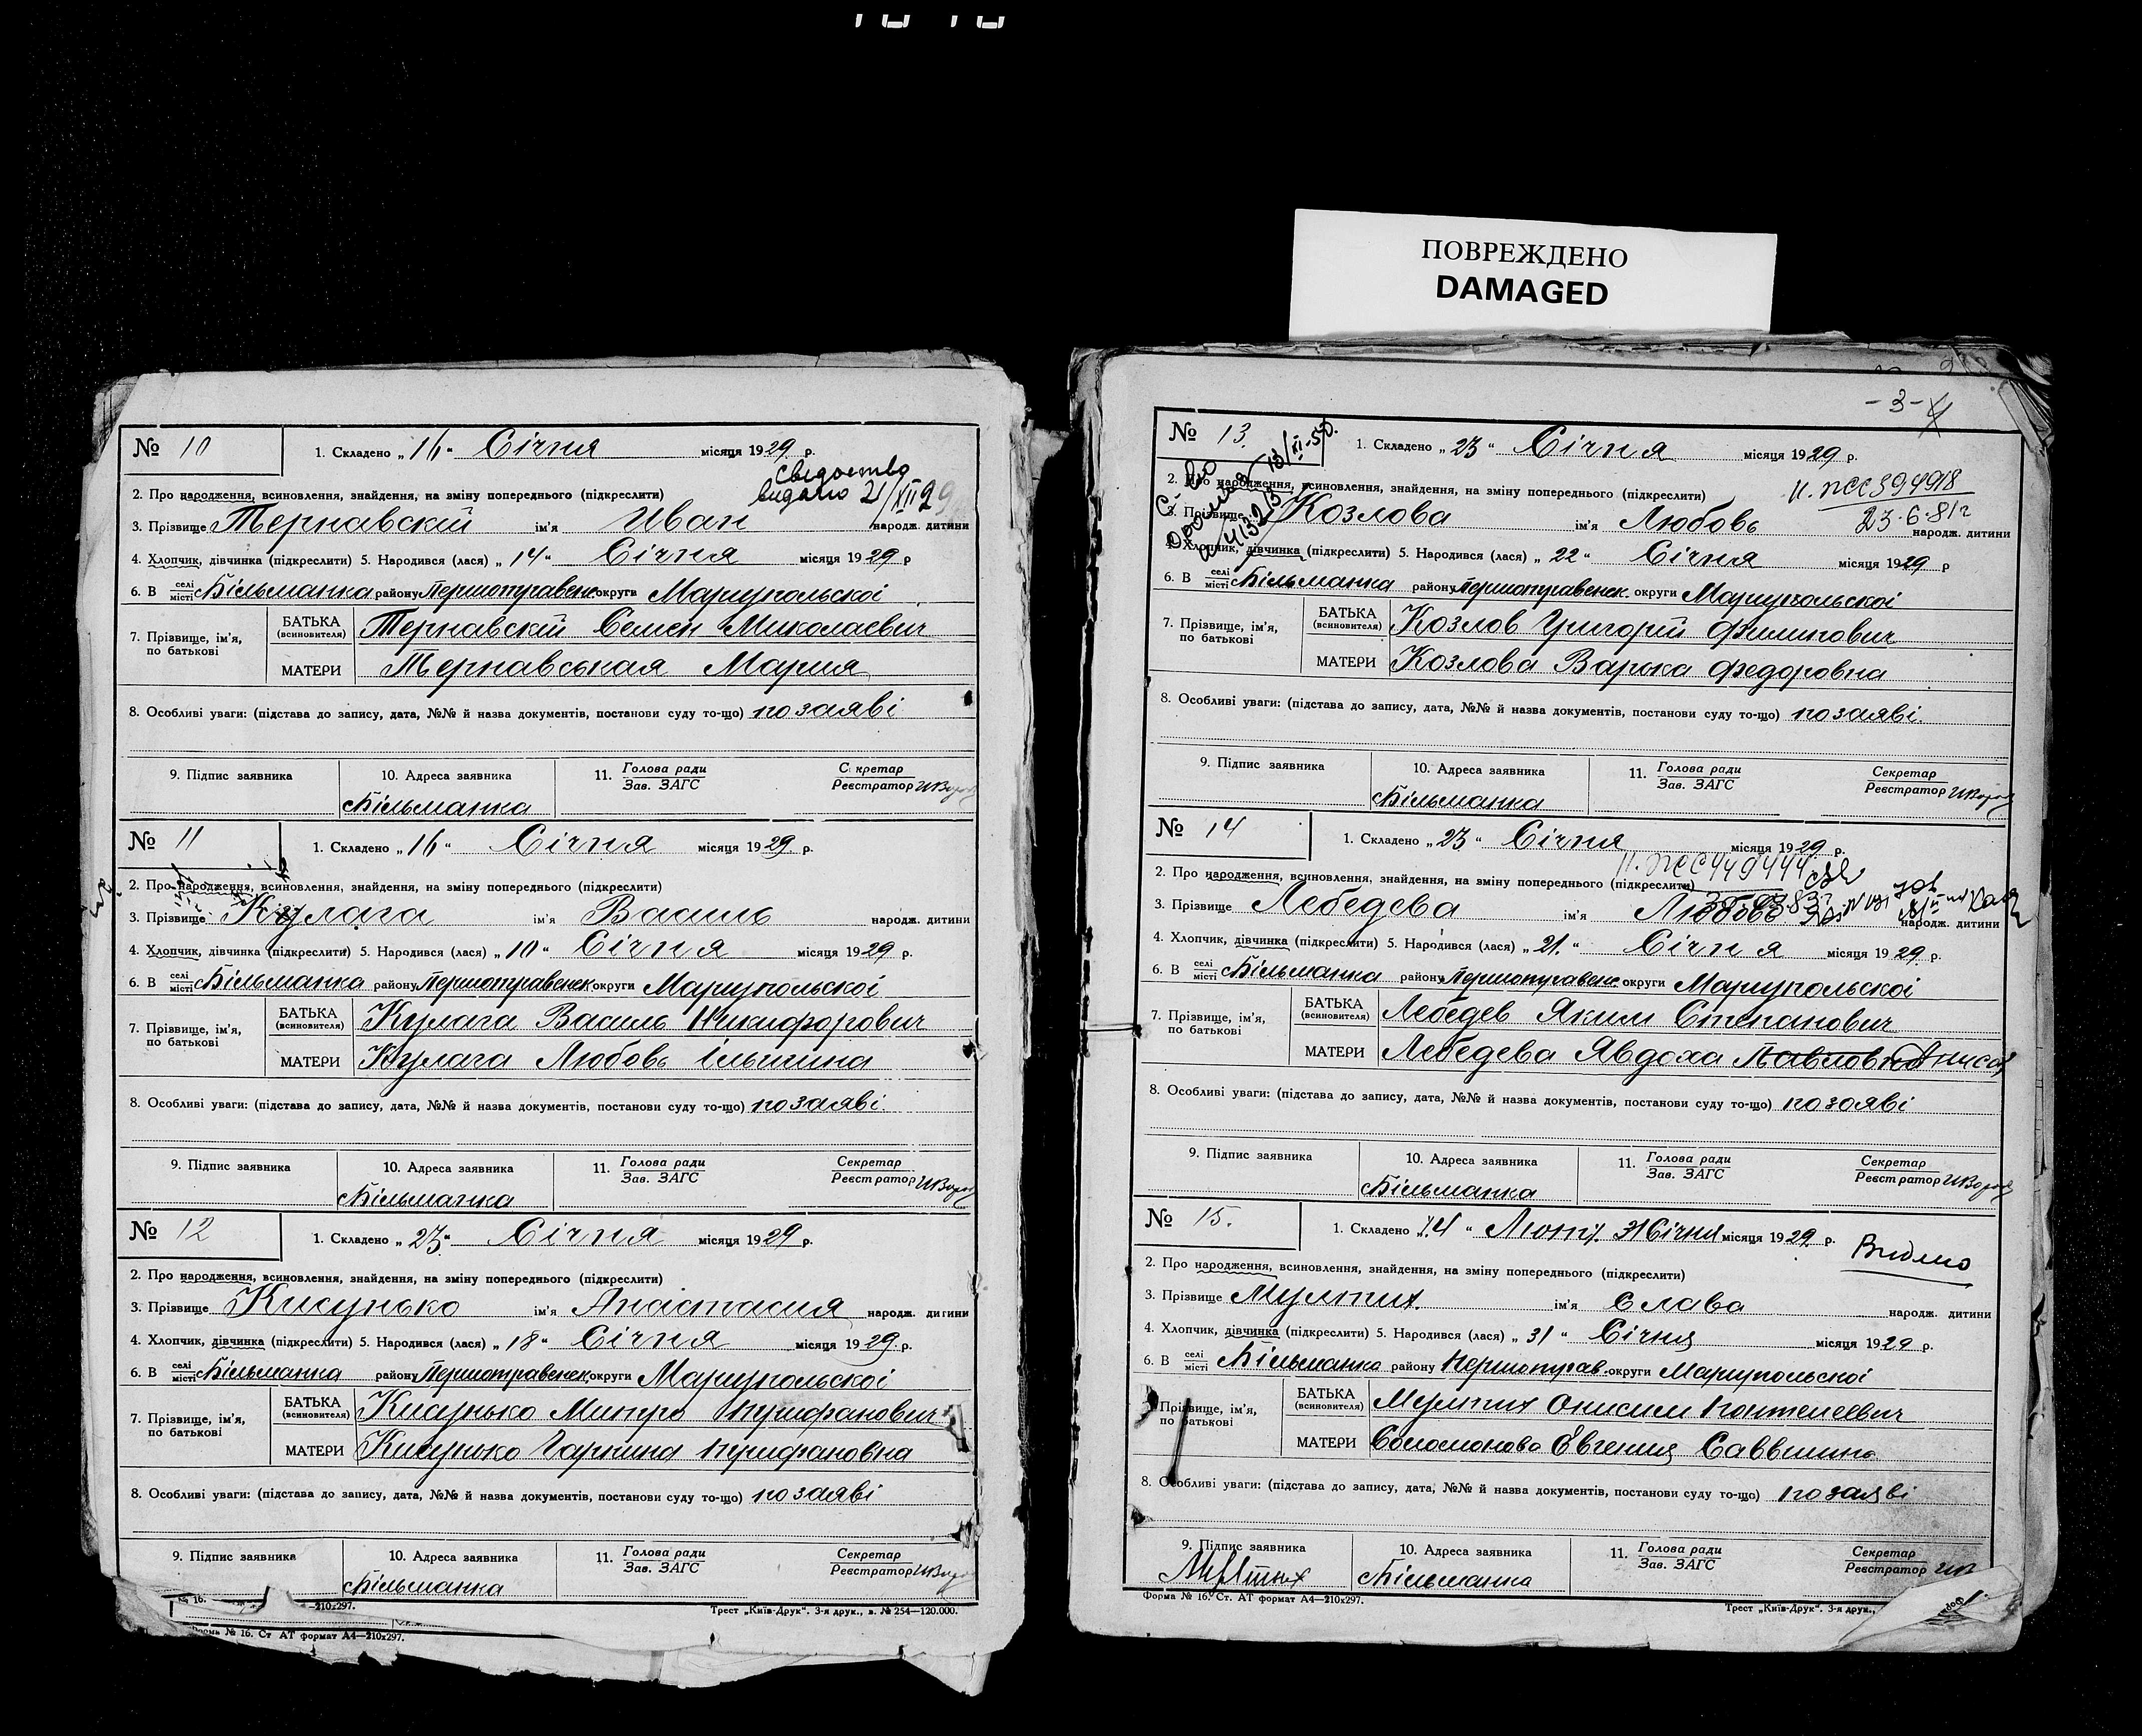 ПОВРЕЖДЕНО
DAMAGED
№ 10
1. Складено „16“ Січня місяця 1929 р.
Сведоство
видано 21/XII 29
2. Про народження, всиновлення, знайдення, на зміну попереднього (підкреслити)
3. Прізвище Тернавскій ім'я Иван народж. дитини
4. Хлопчик, дівчинка (підкреслити) 5. Народився (лася) „14“ Січня місяця 1929 р
6. В селі місті Більманка району Першотравенск округи Маріупольскоі
7. Прізвище, ім'я, по батькові
БАТЬКА (всиновителя) Тернавскій Семен Миколаевич
МАТЕРИ Тернавськая Мария
8. Особливі уваги: (підстава до запису, дата, №№ й назва документів, постанови суду то-що) по заяві
9. Підпис заявника 10. Адреса заявника 11. Голова ради Зав. ЗАГС Секретар Реєстратор
Більманка
№ 11
1. Складено „16“ Січня місяця 1929 р.
2. Про народження, всиновлення, знайдення, на зміну попереднього (підкреслити)
3. Прізвище Кулага ім'я Василь народж. дитини
4. Хлопчик, дівчинка (підкреслити) 5. Народився (лася) „10“ Січня місяця 1929 р.
6. В селі місті Більманка району Першотравенск округи Маріупольскоі
7. Прізвище, ім'я, по батькові
БАТЬКА (всиновителя) Кулага Василь Никифорович
МАТЕРИ Кулага Любовь Ільнична
8. Особливі уваги: (підстава до запису, дата, №№ й назва документів, постанови суду то-що) по заяві.
9. Підпис заявника 10. Адреса заявника 11. Голова ради Зав. ЗАГС Секретар Реєстратор
Більманка
№ 12
1. Складено „23“ Січня місяця 1929 р.
2. Про народження, всиновлення, знайдення, на зміну попереднього (підкреслити)
3. Прізвище Кисунько ім'я Анастасия народж. дитини
4. Хлопчик, дівчинка (підкреслити) 5. Народився (лася) „18“ Січня місяця 1929 р.
6. В селі місті Більманка району Першотравенск округи Маріупольскоі
7. Прізвище, ім'я, по батькові
БАТЬКА (всиновителя) Кисунько Митро
МАТЕРИ Кисунько Гарпина
8. Особливі уваги: (підстава до запису, дата, №№ й назва документів, постанови суду то-що) по заяві
9. Підпис заявника 10. Адреса заявника 11. Голова ради Зав. ЗАГС Секретар Реєстратор
Більманка
№ 16. —210х297. Трест „Київ-Друк“. 3-я друк., в. № 254—120.000.
Форма № 16. Ст АТ формат А4—210х297.
- 3 -
№ 13.
1. Складено „23“ Січня місяця 1929 р.
13/XI-50.
2. Про народження, всиновлення, знайдення, на зміну попереднього (підкреслити)
3. Прізвище Козлова ім'я Любовь народж. дитини
23.6.81г
4. Хлопчик, дівчинка (підкреслити) 5. Народився (лася) „22“ Січня місяця 1929 р
6. В селі місті Більманка району Першотравенск. округи Маріупольскоі
7. Прізвище, ім'я, по батькові
БАТЬКА (всиновителя) Козлов Григорій Филипович
МАТЕРИ Козлова Варька Федоровна
8. Особливі уваги: (підстава до запису, дата, №№ й назва документів, постанови суду то-що) по заяві.
9. Підпис заявника 10. Адреса заявника 11. Голова ради Зав. ЗАГС Секретар Реєстратор
Більманка
№ 14
1. Складено „23“ Січня місяця 1929 р.
2. Про народження, всиновлення, знайдення, на зміну попереднього (підкреслити)
3. Прізвище Лебедєва ім'я Любовь народж. дитини
4. Хлопчик, дівчинка (підкреслити) 5. Народився (лася) „21.“ Січня місяця 1929. р.
6. В селі місті Більманка району Першотравенс. округи Маріупольскоі
7. Прізвище, ім'я, по батькові
БАТЬКА (всиновителя) Лебедев Яким Степанович
МАТЕРИ Лебедева Явдоха
8. Особливі уваги: (підстава до запису, дата, №№ й назва документів, постанови суду то-що) по заяві
9. Підпис заявника 10. Адреса заявника 11. Голова ради Зав. ЗАГС Секретар Реєстратор
Більманка
№ 15.
1. Складено 31 Січня місяця 1929. р.
2. Про народження, всиновлення, знайдення, на зміну попереднього (підкреслити)
3. Прізвище ім'я Слава народж. дитини
4. Хлопчик, дівчинка (підкреслити) 5. Народився (лася) „31“ Січня місяця 1929 р.
6. В селі місті Більманка району Першотрав. округи Маріупольскоі
7. Прізвище, ім'я, по батькові
БАТЬКА (всиновителя) Онисим
МАТЕРИ Соломонова Євгения Саввишна
8. Особливі уваги: (підстава до запису, дата, №№ й назва документів, постанови суду то-що) по заяві
9. Підпис заявника 10. Адреса заявника 11. Голова ради Зав. ЗАГС Секретар Реєстратор
Більманка
Форма № 16. Ст. АТ формат А4—210х297. Трест „Київ-Друк“. 3-я друк.,